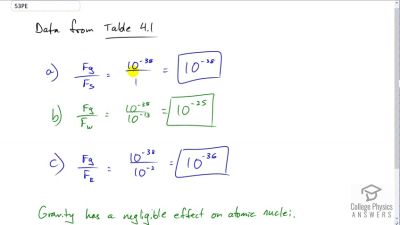 53PE
Data from Table 4.1
a) Fg/Fs = 10^-38/1 = 10^-38
b) Fg/Fw = 10^-38/10^-13 = 10^-25
c) Fg/FE = 10^-38/10^-2 = 10^-36
Gravity has a negligible effect on atomic nuclei.
College Physics
ANSWERS